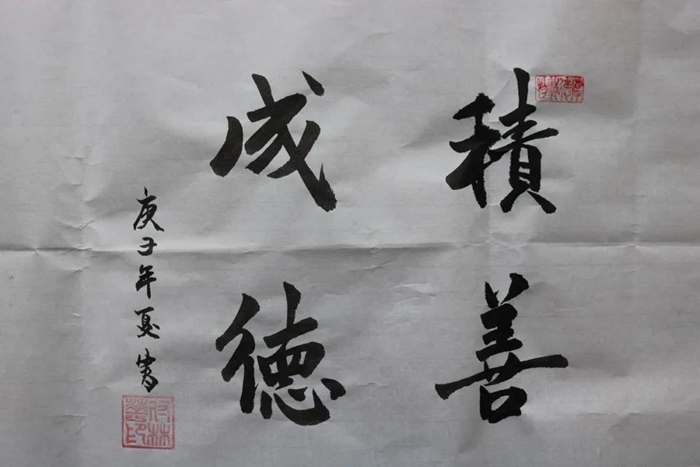 積善
成德
庚子年夏書